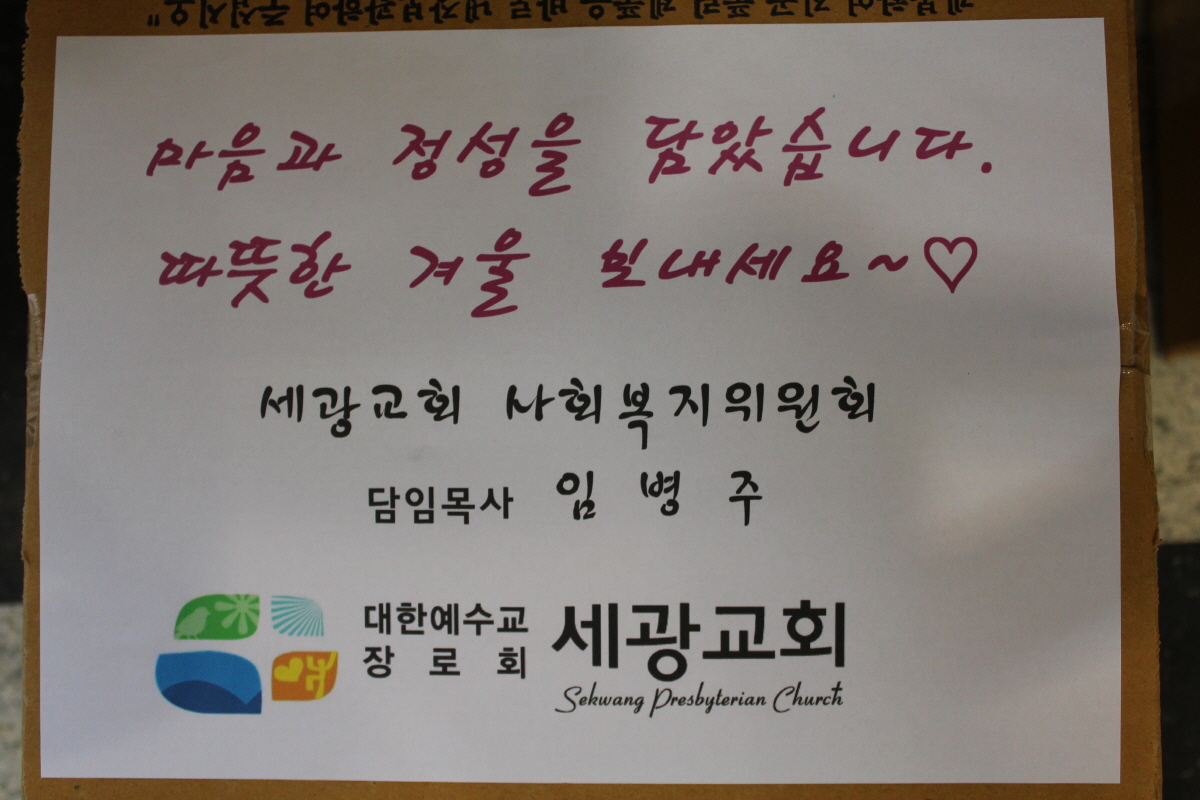 마음과 정성을 담았습니다.
따뜻한 겨울 보내세요~♡
세광교회 사회복지위원회
담임목사 임 병 주
대한예수교
장 로 회
세광교회
Sekwang Presbyterian Church